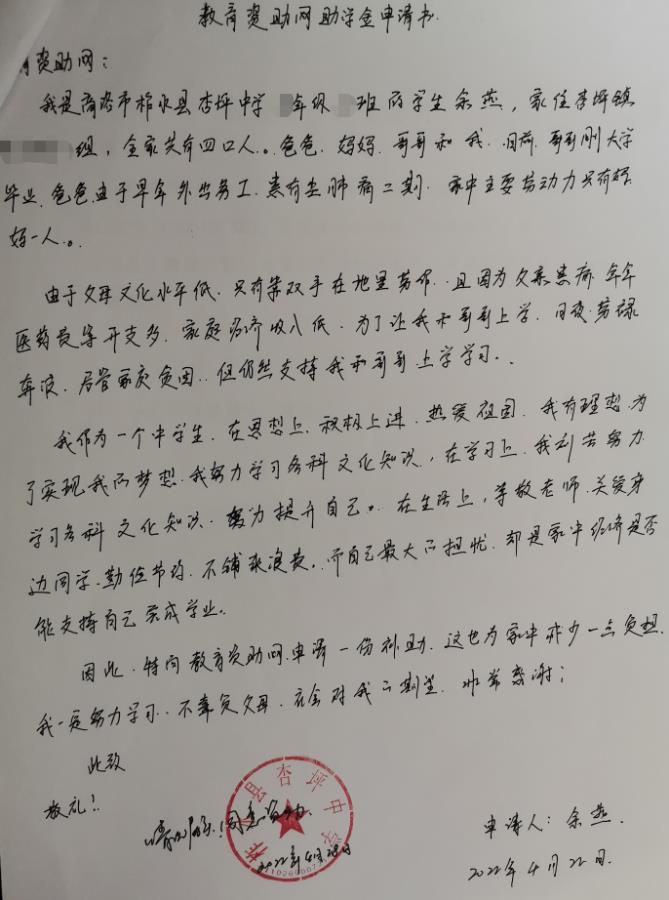 教育资助网助学金申请书
资助网：
我是商洛市柞水县杏坪中学 年级 班的学生余燕，家住杏坪镇
组，全家共有四口人。爸爸、妈妈、哥哥和我．目前，哥哥刚大学
毕业，爸爸由于早年外出务工．患有尘肺病二期．家中主要劳动力只有妈
妈一人。
由于父母文化水平低．只有靠双手在地里劳作．且因为父亲患病．年年
医药费等开支多．家庭经济收入低．为了让我和哥哥上学．日夜劳碌
奔波．尽管家庭贫困．但仍然支持我和哥哥上学学习．
我作为一个中学生．在思想上．积极上进．热爱祖国．我有理想．为
了实现我的梦想．我努力学习各科文化知识，在学习上．我刻苦努力
学习各科文化知识．努力提升自己。在生活上，尊敬老师．关爱身
边同学．勤俭节约．不铺张浪费．而自己最大的担忧．却是家中经济是否
能支持自己完成学业．
因此．特向教育资助网．申请一份补助．这也为家中减少一点负担．
我一定努力学习．不辜负父母．社会对我的期望．非常感谢！
此致
敬礼！
情况属实．同意资助．
县杏坪中学
2022年4月
申请人：余燕．
2022年4月22日．